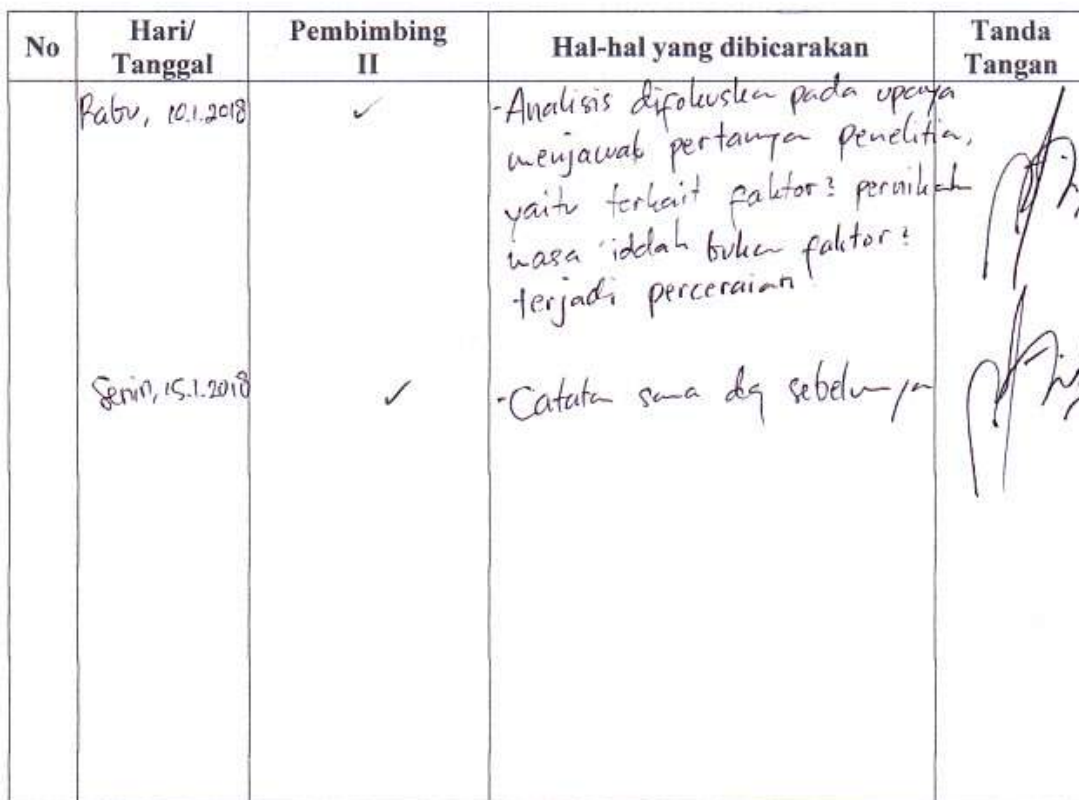 No Hari/ Tanggal Pembimbing II Hal-hal yang dibicarakan Tanda Tangan
Rabu, 10.1.2018 ✓ - Analisis difokuskan pada upaya
menjawab pertanyaan penelitian,
yaitu terkait faktor² pernikahan
masa iddah bukan faktor²
terjadi perceraian
Senin, 15.1.2018 ✓ - Catatan sama dg sebelumnya